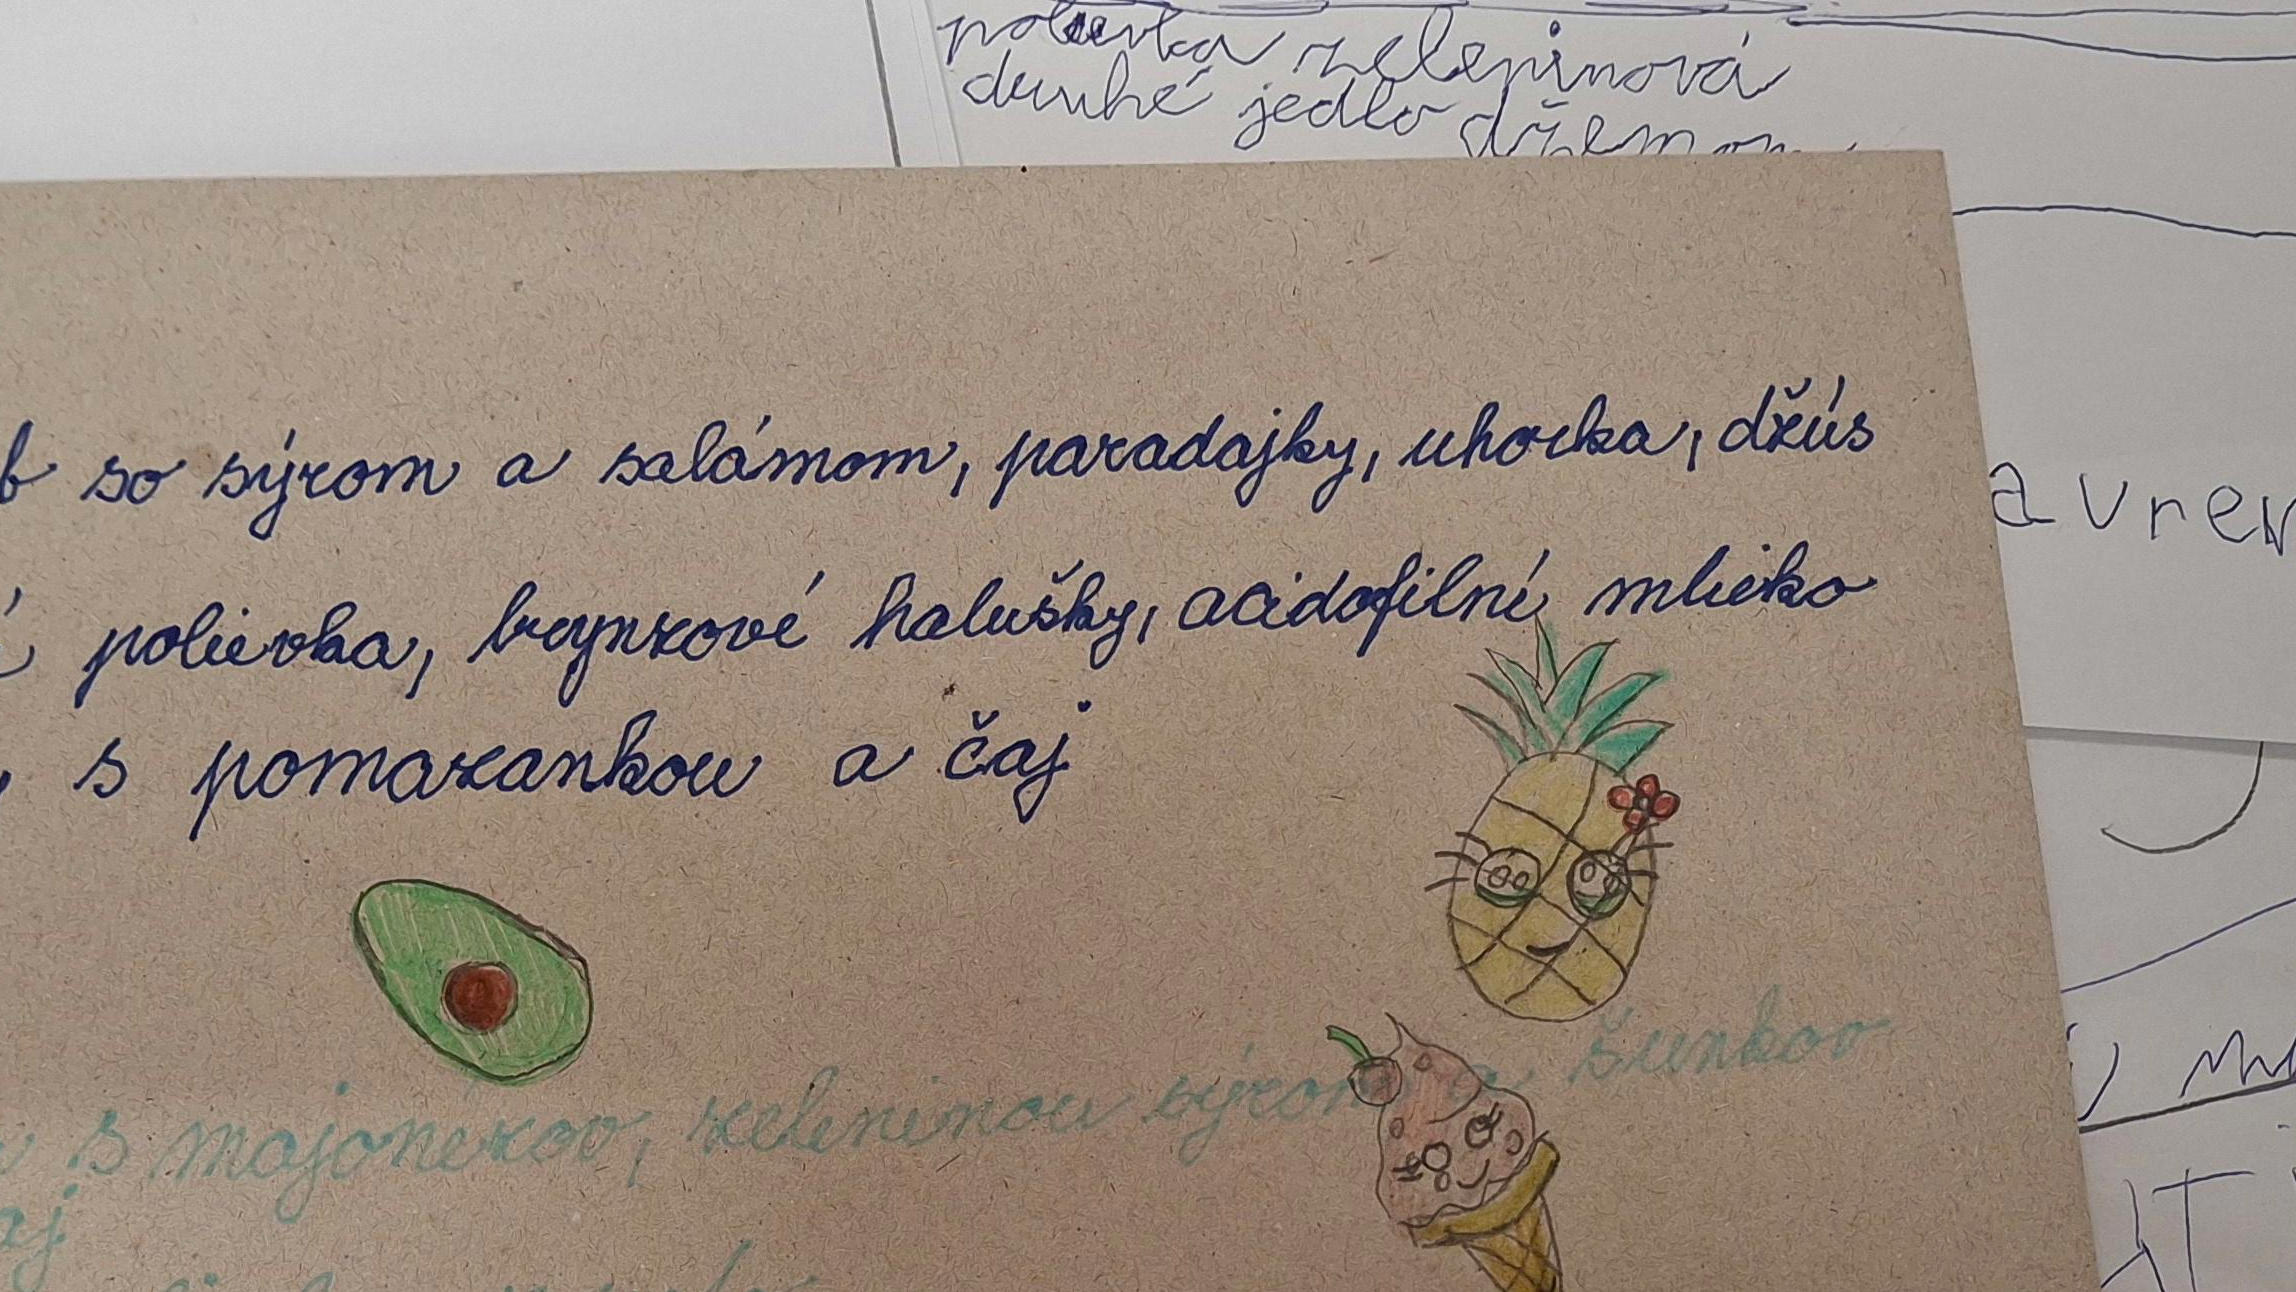 polievka zeleninová
druhé jedlo džemom
b so sýrom a salámom, paradajky, uhorka, džús
é polievka, brynzové halušky, acidofilné mlieko
s pomazankou a čaj
s majonézov, zeleninou sýrom a šunkov
aj